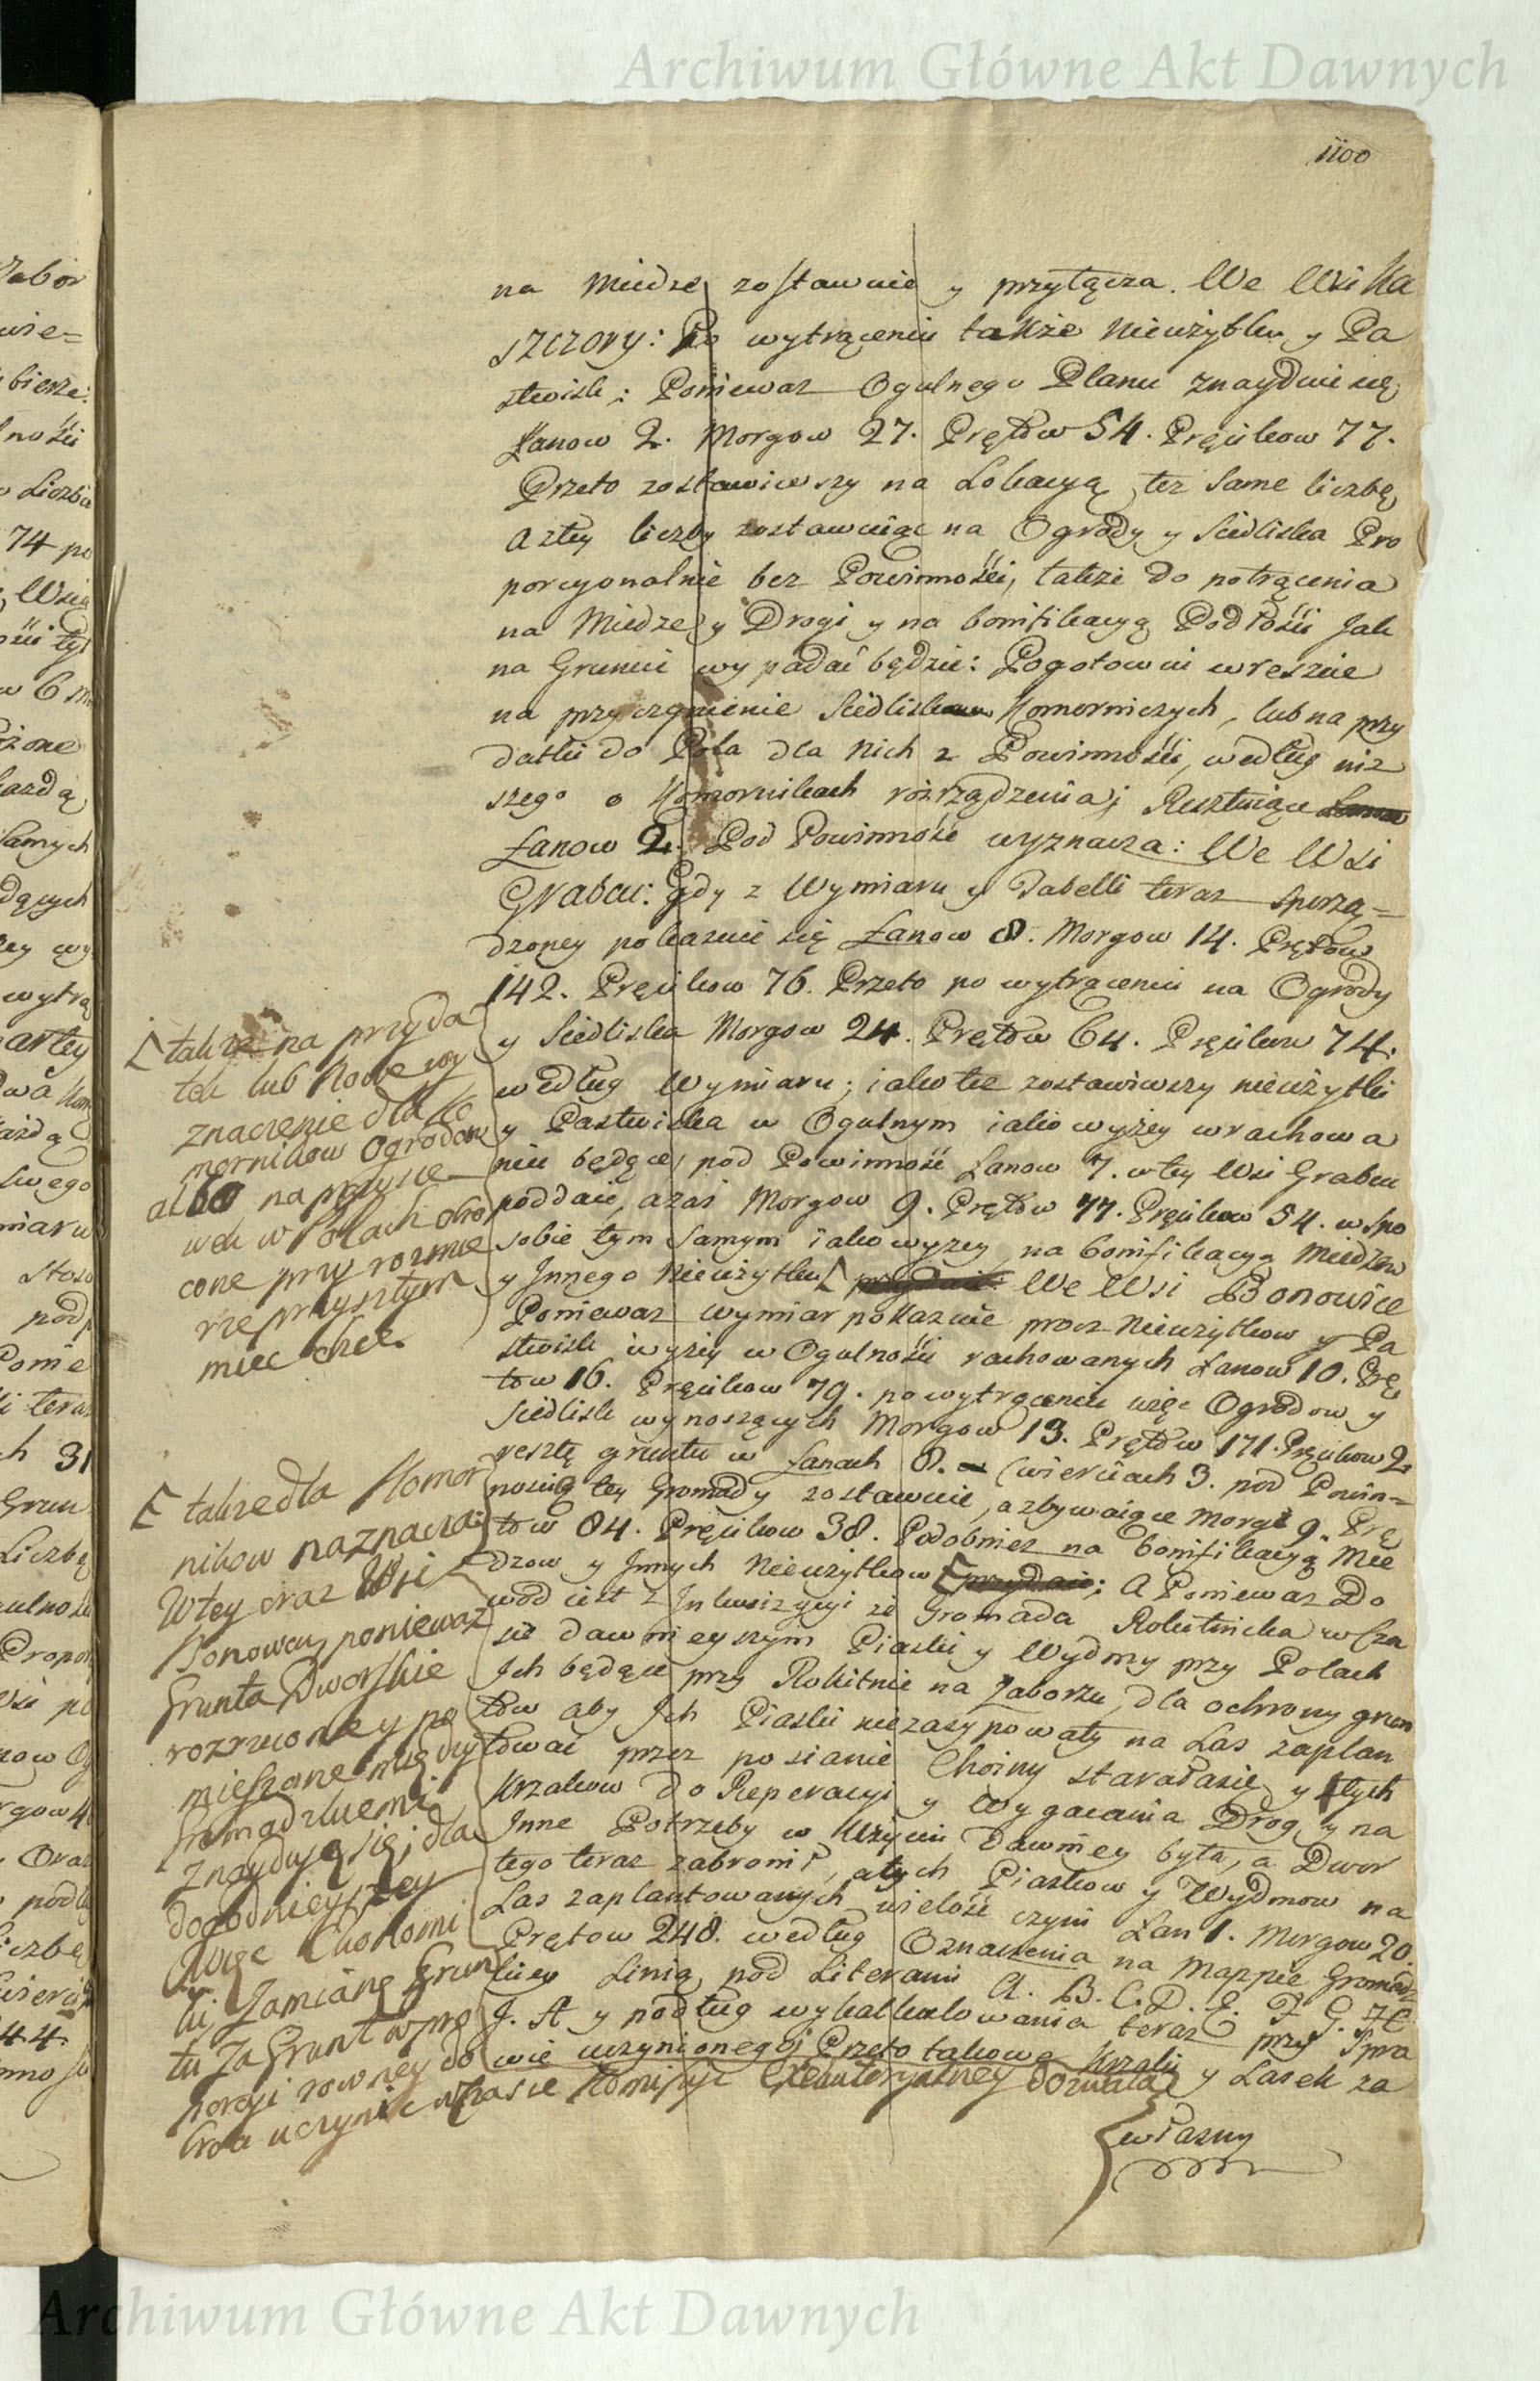 Archiwum Główne Akt Dawnych
1100
na Miedze zostawuie y przyłącza. We Wsi Ka
szczory: Po wytrąceniu także Nieużytku y Pa
stwisk; Ponieważ Ogulnego Planu znayduie się
Łanow 2. Morgow 27. Prętow 54. Pręcikow 77.
Przeto zostawiwszy na Lokacyą też same liczbę
a ztey liczby zostawuiąc na Ogrody y Siedliska Pro
porcyonalnie bez Powinności, także do potrącenia
na Miedze y Drogi y na bonifikacyą Podłości Jak
na Gruncie wypadać będzie: Pogotowiu wreszcie
na przyczynienie Siedlisk Komorniczych, lub na przy
datki do Pola dla Nich z Powinności, według niż
szego o Komornikach rozrządzenia; Resztuiące
Łanow 2. Pod Powinność wyznacza: We Wsi
Grabcu: Gdy z Wymiaru y Tabelli teraz sporzą=
dzoney pokazuie się Łanow 8. Morgow 14. Prętow
142. Pręcikow 76. Przeto po wytrąceniu na Ogrody
y Siedliska Morgow 24. Prętow 64. Pręcikow 74.
według Wymiaru; iako też zostawiwszy nieużytki
y Pastwiska w Ogulnym iako wyżey wrachowa
niu będące, pod Powinność Łanow 7. w tey Wsi Grabcu
poddaie, a zaś Morgow 9. Prętow 77. Pręcikow 54. w spo
sobie tym samym iako wyżey na bonifikacyą Miedzow
y Innego Nieużytku [ We Wsi Bonowice
Ponieważ wymiar pokazuie procz Nieużytkow y Pa
stwisk wyżey w Ogulności rachowanych Łanow 10. Prę
tow 16. Pręcikow 79. po wytrąceniu więc Ogrodow y
Siedlisk wynoszących Morgow 13. Prętow 171. Pręcikow 2.
resztę gruntu w Łanach 8. Cwierciach 3. pod Powin=
nością tey Gromady zostawuie, a zbywaiące Morgi 9. Prę
tow 84. Pręcikow 38. Podobnież na bonifikacyą Mie
dzow y Innych Nieużytkow [ przydaie; A Ponieważ Do
wod iest z Inkwizycyi że Gromada Rokitnicka w Cza
sie dawnieyszym Piaski y Wydmy przy Polach
Ich będące przy Rokitnie na Zaborzu, dla ochrony grun
tow aby Ich Piaski niezasypowały na Las zaplan
tować przez posianie Choiny starała się y tych
Krzakow do Reperacyi y Wygacania Drog y na
Inne Potrzeby w Użyciu Dawniey była, a Dwor
tego teraz zabronił, a tych Piaskow y Wydmow na
Las zaplantowanych wielość czyni Łan 1. Morgow 20.
Prętow 248. według Oznaczenia na Mappie Gromadz
kiey Linią pod Literami A. B. C. D. E. F. G. H.
J. A y podług wykalkulowania teraz przy Spra
wie uczynionego; Przeto takowe Krzaki y Lasek za
własny
[ także na przyda
tek lub Nowe wy
znaczenie dla Ko
mornikow Ogrodow
albo na
wek w Polach obro
cone przy rozmie
rze przyszłym
mieć chce.
[ także dla Komor
nikow naznacza:
W tey oraz Wsi
Bonowcu, ponieważ
Grunta Dworskie
rozrzucone y po
mieszane między
Gromadzkiemi
znayduią się; dla
dogodnieyszey
Ekonomi
ki, Zamianę Grun
tu Za Grunt w pro
porcyi rowney do
broci uczynić w czasie Komissyi Exekutoryalney dozwala
Archiwum Główne Akt Dawnych